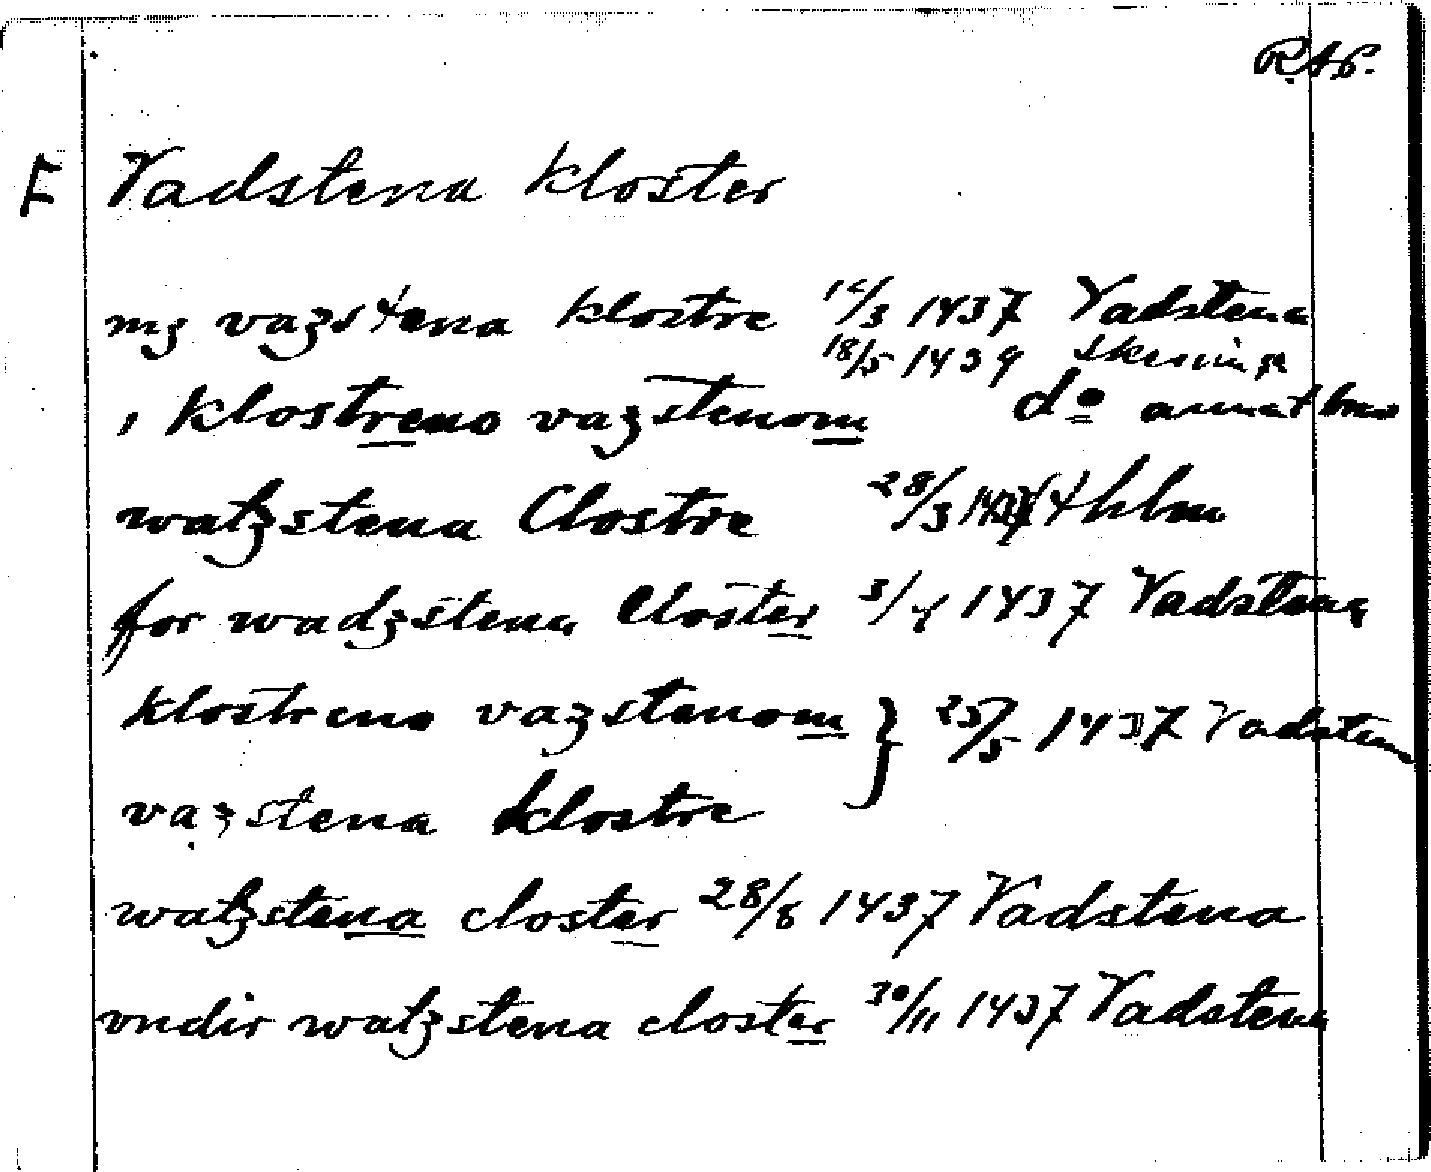 RAP.
F Vadstena kloster
mz vazstena klostre 12/3 1437 Vadstena
18/5 1439
i klostreno vazstenom do annat brev
watzstena Clostre 28/3
for wadzstena Closter 3/4 1437 Vadstena
klostreno vazstenom } 25/5 1437 Vadstena
vazstena klostre
watzstena closter 28/8 1437 Vadstena
vndir watzstena closter 30/11 1437 Vadstena